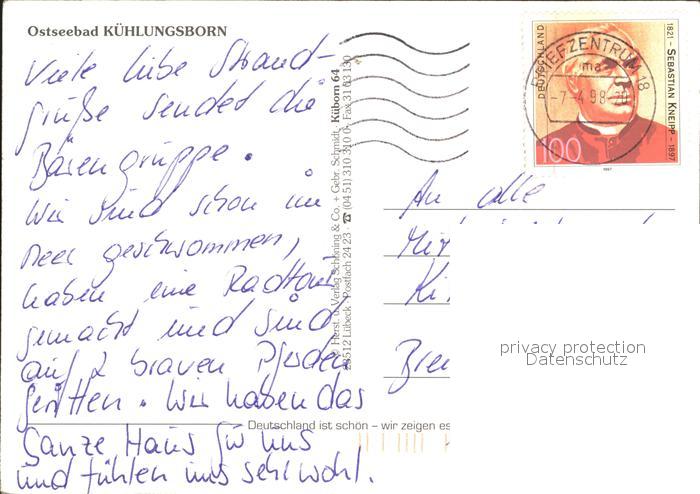 Ostseebad KÜHLUNGSBORN
Viele liebe Strand-
grüße sendet die
Bärengruppe.
Wir sind schon im
Meer geschwommen,
haben eine Radtour
gemacht und sind
auf 2 braven Pferden
geritten. Wir haben das
ganze Haus für uns
und fühlen uns sehr wohl.
Deutschland ist schön – wir zeigen es
Herst. u. Verlag Schöning & Co. + Gebr. Schmidt, Küborn 64
23512 Lübeck · Postfach 24 23 · ☎ (04 51) 310 310 0 · Fax 31 03 190
DEUTSCHLAND
1821 – SEBASTIAN KNEIPP – 1897
100
1997
BRIEFZENTRUM 18
ma
-7-4.98-20
An alle
Bre
privacy protection
Datenschutz